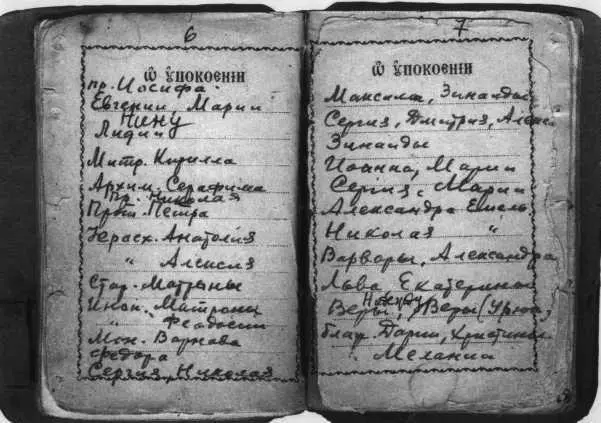 6
Ѡ ᲂУПОКОЕНІИ
пр. Иосифа
Евгении Марии
Нину
Лидии
Митр. Кирилла
Архим. Серафима
Пр. Николая
Прот. Петра
Иерасх. Анатолия
" Алексия
Стар. Матроны
Инок. Матроны
" Феодосии
Мон. Варнава
Федора
Сергия Николая
7
Ѡ ᲂУПОКОЕНІИ
Максима, Зинаиды
Сергия, Дмитрия, Алекс
Зинаиды
Иоанна, Марии
Сергия, Марии
Александра Емель
Николая "
Варвары, Александра
Льва Екатерины
Веры, Надежду Веры (Урюп
блаж. Дарии, Христины
" Мелании